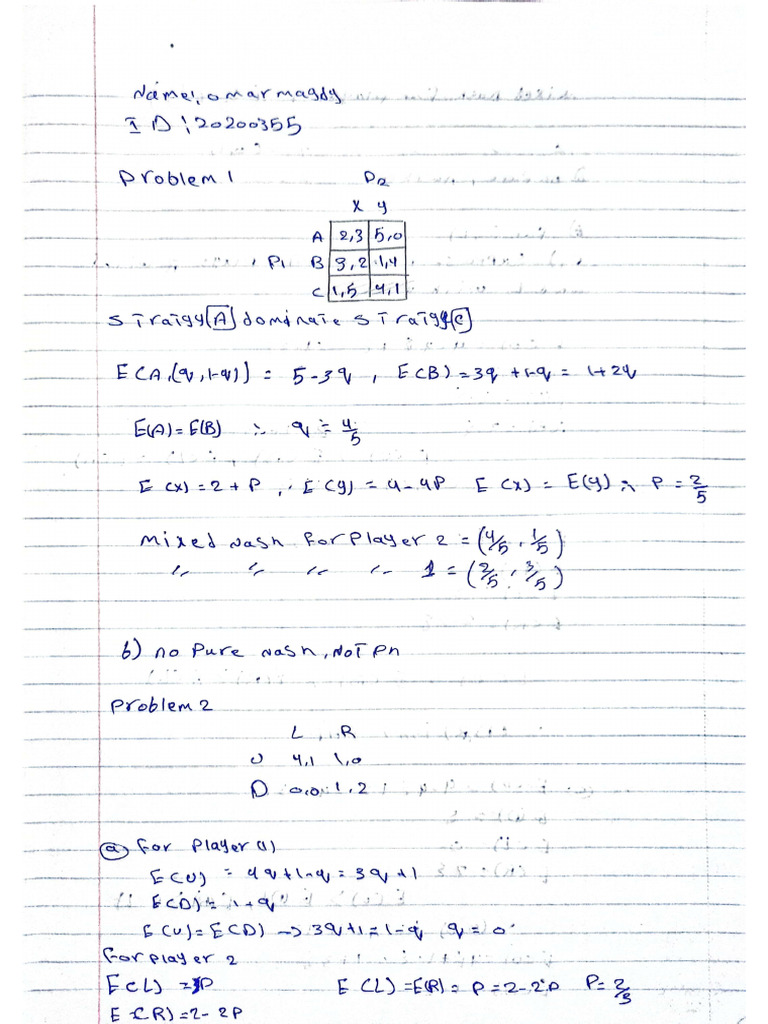 Name: omar magdy
ID: 20200355
Problem 1 P2
x y
A 2,3 5,0
P1 B 3,2 1,4
C 1,5 4,1
Straigy A dominate straigy C
E(A,(q,1-q)) = 5-3q , E(B) = 3q +1-q = 1+2q
E(A) = E(B) ∴ q = 4/5
E(x) = 2+P , E(y) = 4-4P E(x) = E(y) ∴ P = 2/5
Mixed nash for Player 2 = (4/5 , 1/5)
〃 〃 〃 〃 1 = (2/5 , 3/5)
b) no Pure nash, NOT Pn
Problem 2
L R
U 4,1 1,0
D 0,0 1,2
a For Player (1)
E(U) = 4q+1-q = 3q+1
E(D) = 1+q
E(U) = E(D) → 3q+1 = 1-q q = 0
For player 2
E(L) = P E(L) = E(R) = P = 2-2P P = 2/3
E(R) = 2-2P